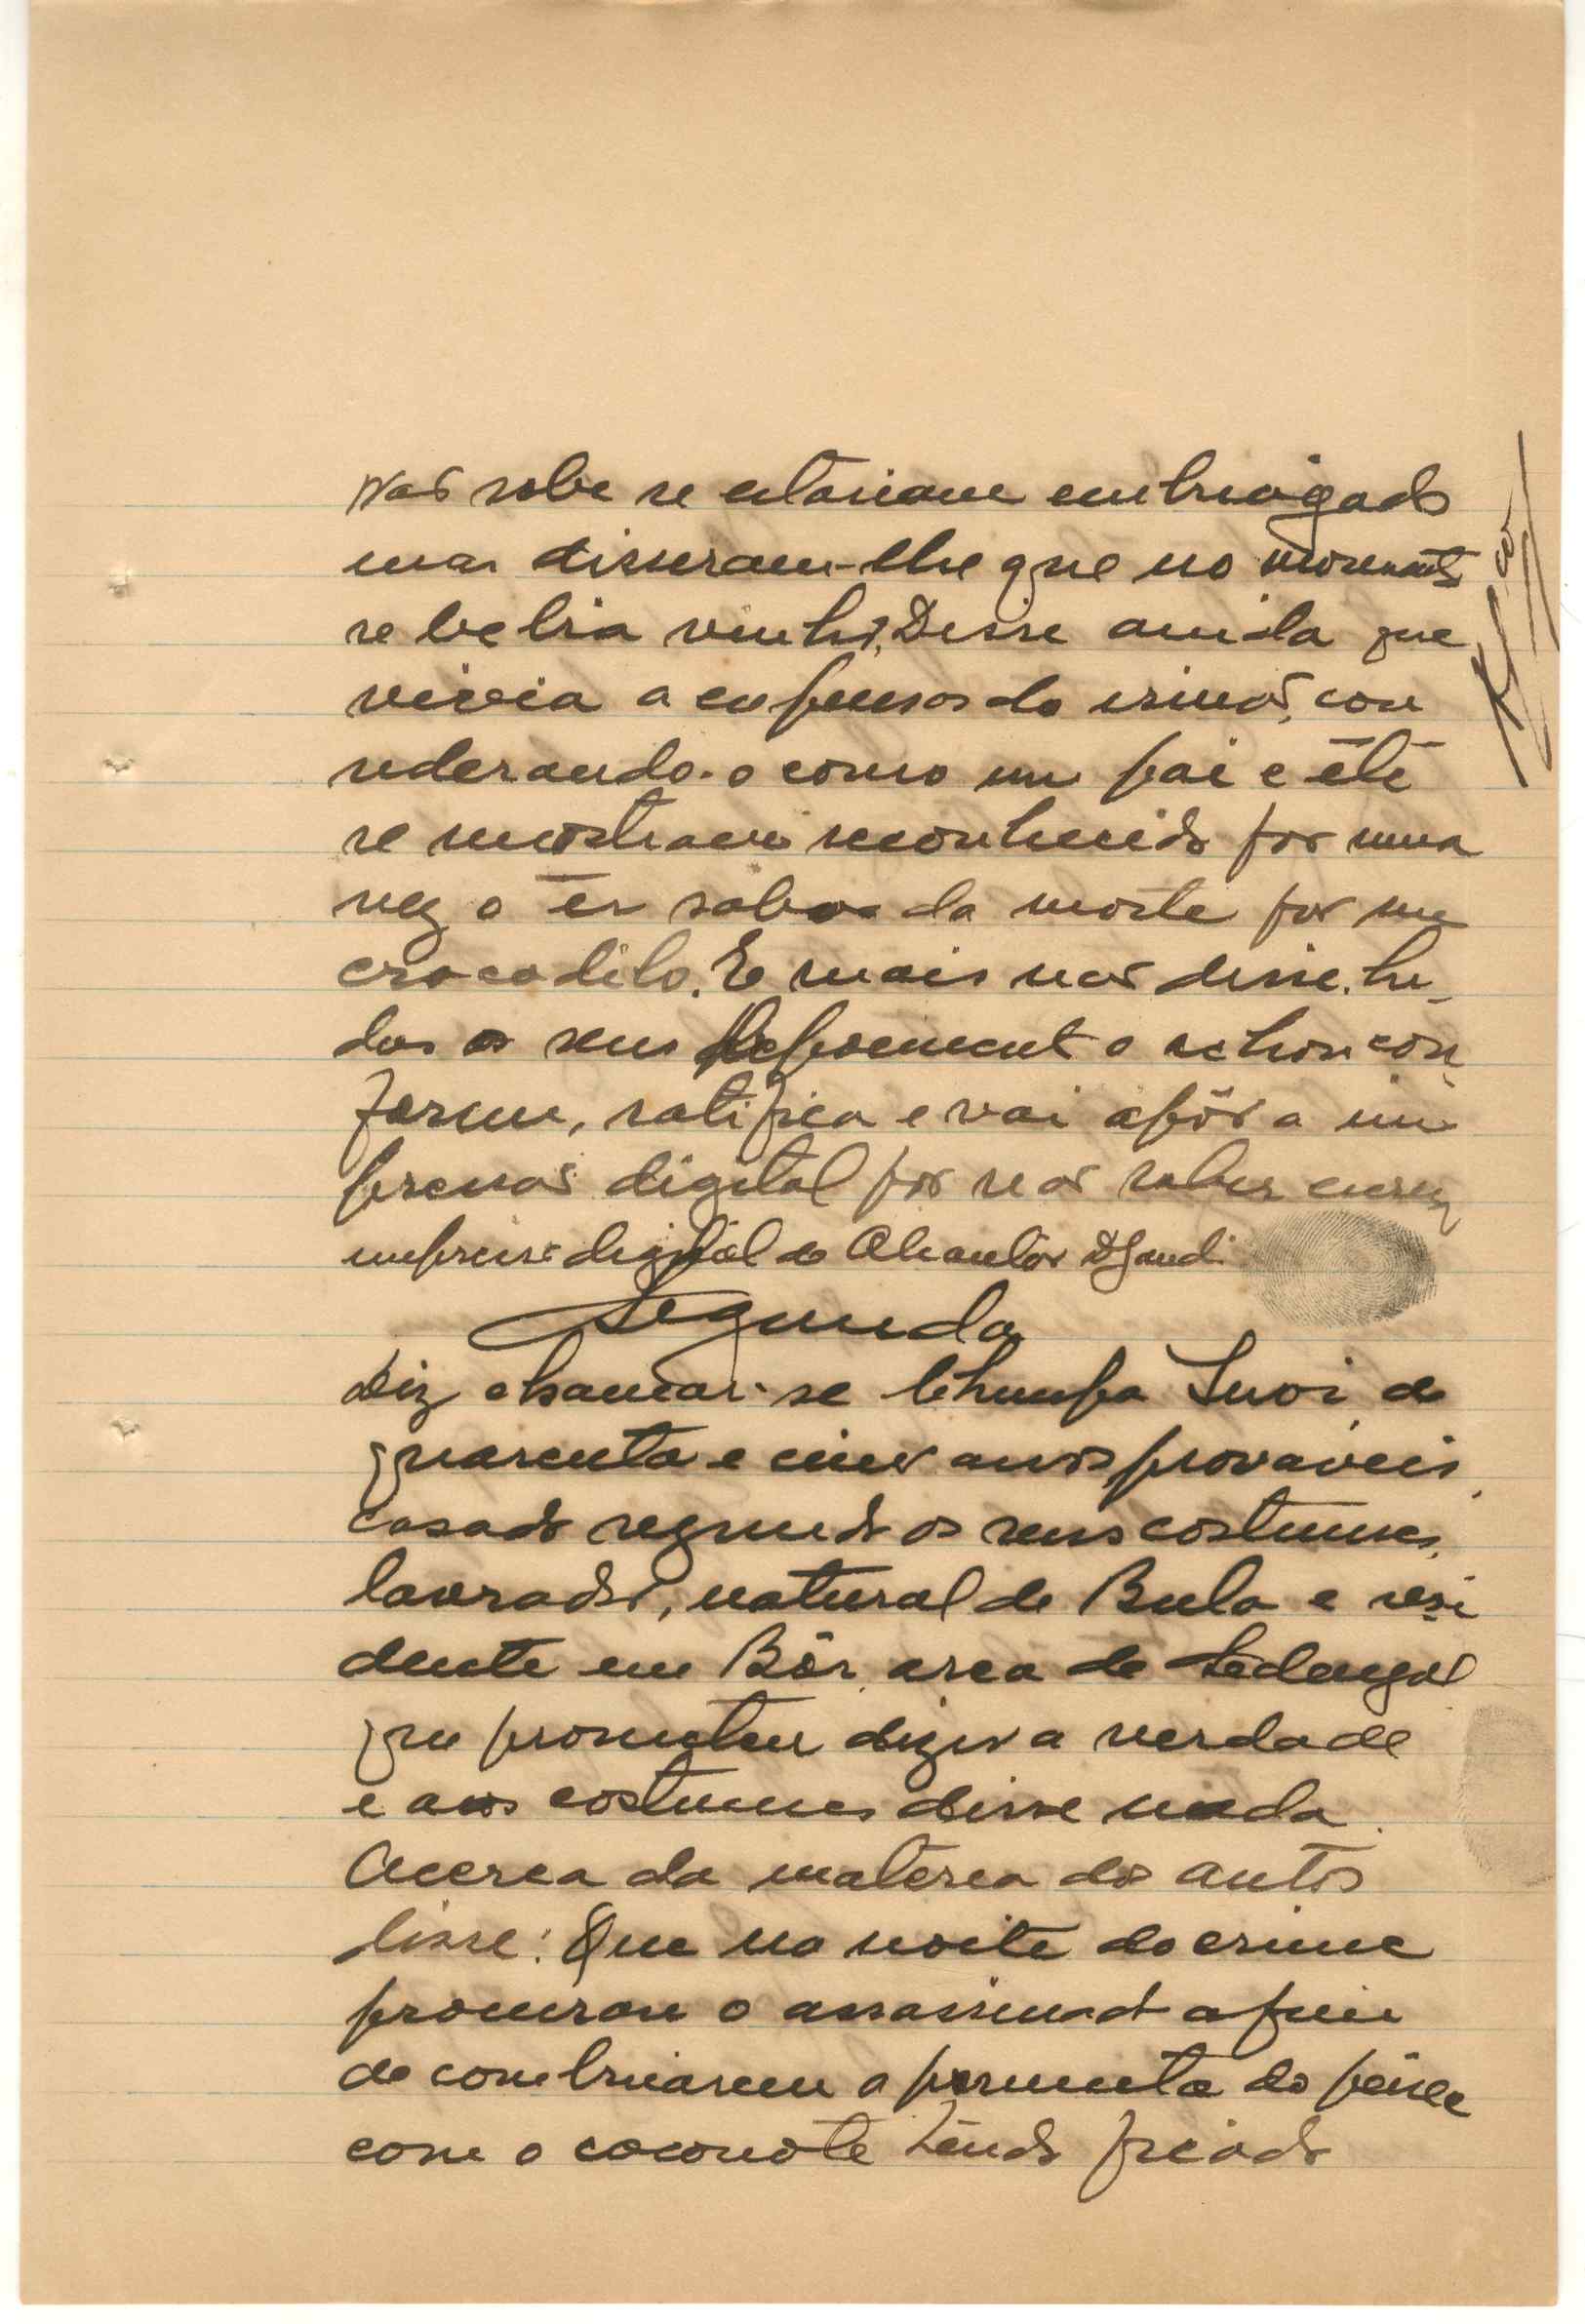 Não sabe se estariam embriagado
mas disseram-lhe que no momento
se bebia vinho. Disse ainda que
vivia a expensas do irmão, con
siderando-o como um pai e êle
se mostrava reconhecido por uma
vez o ter salvo da morte por um
crocodilo. E mais não disse. Li-
das o seu depoimento o achou con
forme, ratifica e vai apôr a im
pressão digital por não saber
impressão digital de Djandi
Segunda
Diz chamar-se Chumpa Suoi de
quarenta e cinco anos provaveis,
casado segundo os seus costumes,
lavrador, natural de Bula e resi
dente em Bôr, area de
que prometeu dizer a verdade
e aos costumes disse nada.
Acerca da materea dos autos
disse: Que na noite do crime
procurou o assassinado afim
de combinarem a permuta do peixe
com o coconote tendo ficado